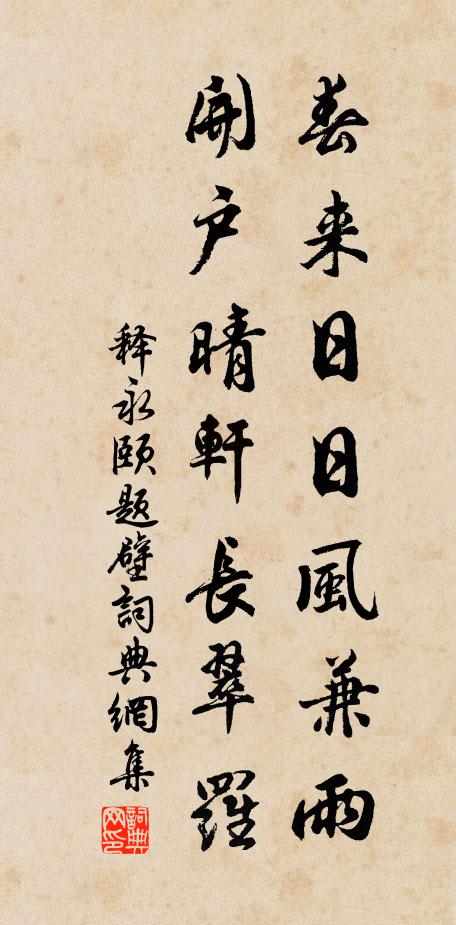 春来日日風兼雨
開户晴軒長翠羅
释永颐题壁詞典網集
詞典网印